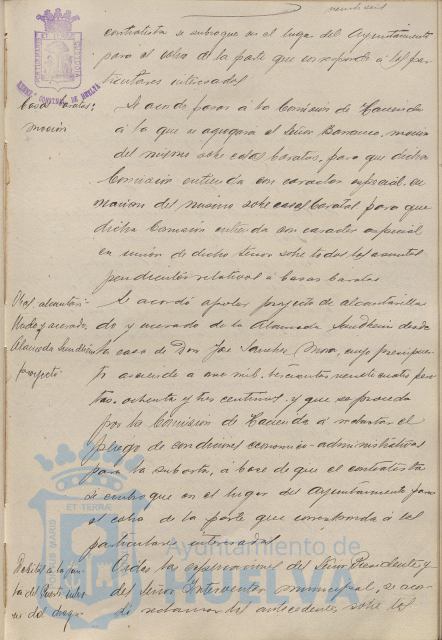 contratista se subrogue en el lugar del Ayuntamiento
para el cobro de la parte que corresponde á los par-
ticulares interesados
Casas baratas:
moción
Se acordó pasar á la Comisión de Hacienda
á la que se agregará el Señor Barranco, moción
del mismo sobre casas baratas, para que dicha
Comisión entienda con caracter especial en
moción del mismo sobre casas baratas para que
dicha Comisión entienda con caracter especial
en unión de dicho Señor sobre todos los asuntos
pendientes relativos á Casas baratas
Obras alcantari-
llado y acerado
Alameda Sundheim
proyecto
Se acordó aprobar proyecto de alcantarilla-
do y acerado de la Alameda Sundheim desde
la casa de Don José Sanchez Mora, cuyo presupues-
to asciende á once mil, trescientas veinticuatro pese-
tas, ochenta y tres centimos, y que se proceda
por la Comisión de Hacienda á redactar el
pliego de condiciones económico-administrativas
para la subasta, á base de que el contratista
se subrogue en el lugar del Ayuntamiento para
el cobro de la parte que corresponda á los
particulares interesados
Debitos á la Jun-
ta del Puerto
Oidas las explicaciones del Señor Presidente y
del Señor Interventor municipal, se acor-
dó reclamar los antecedentes sobre los
Ayuntamiento de
HUELVA